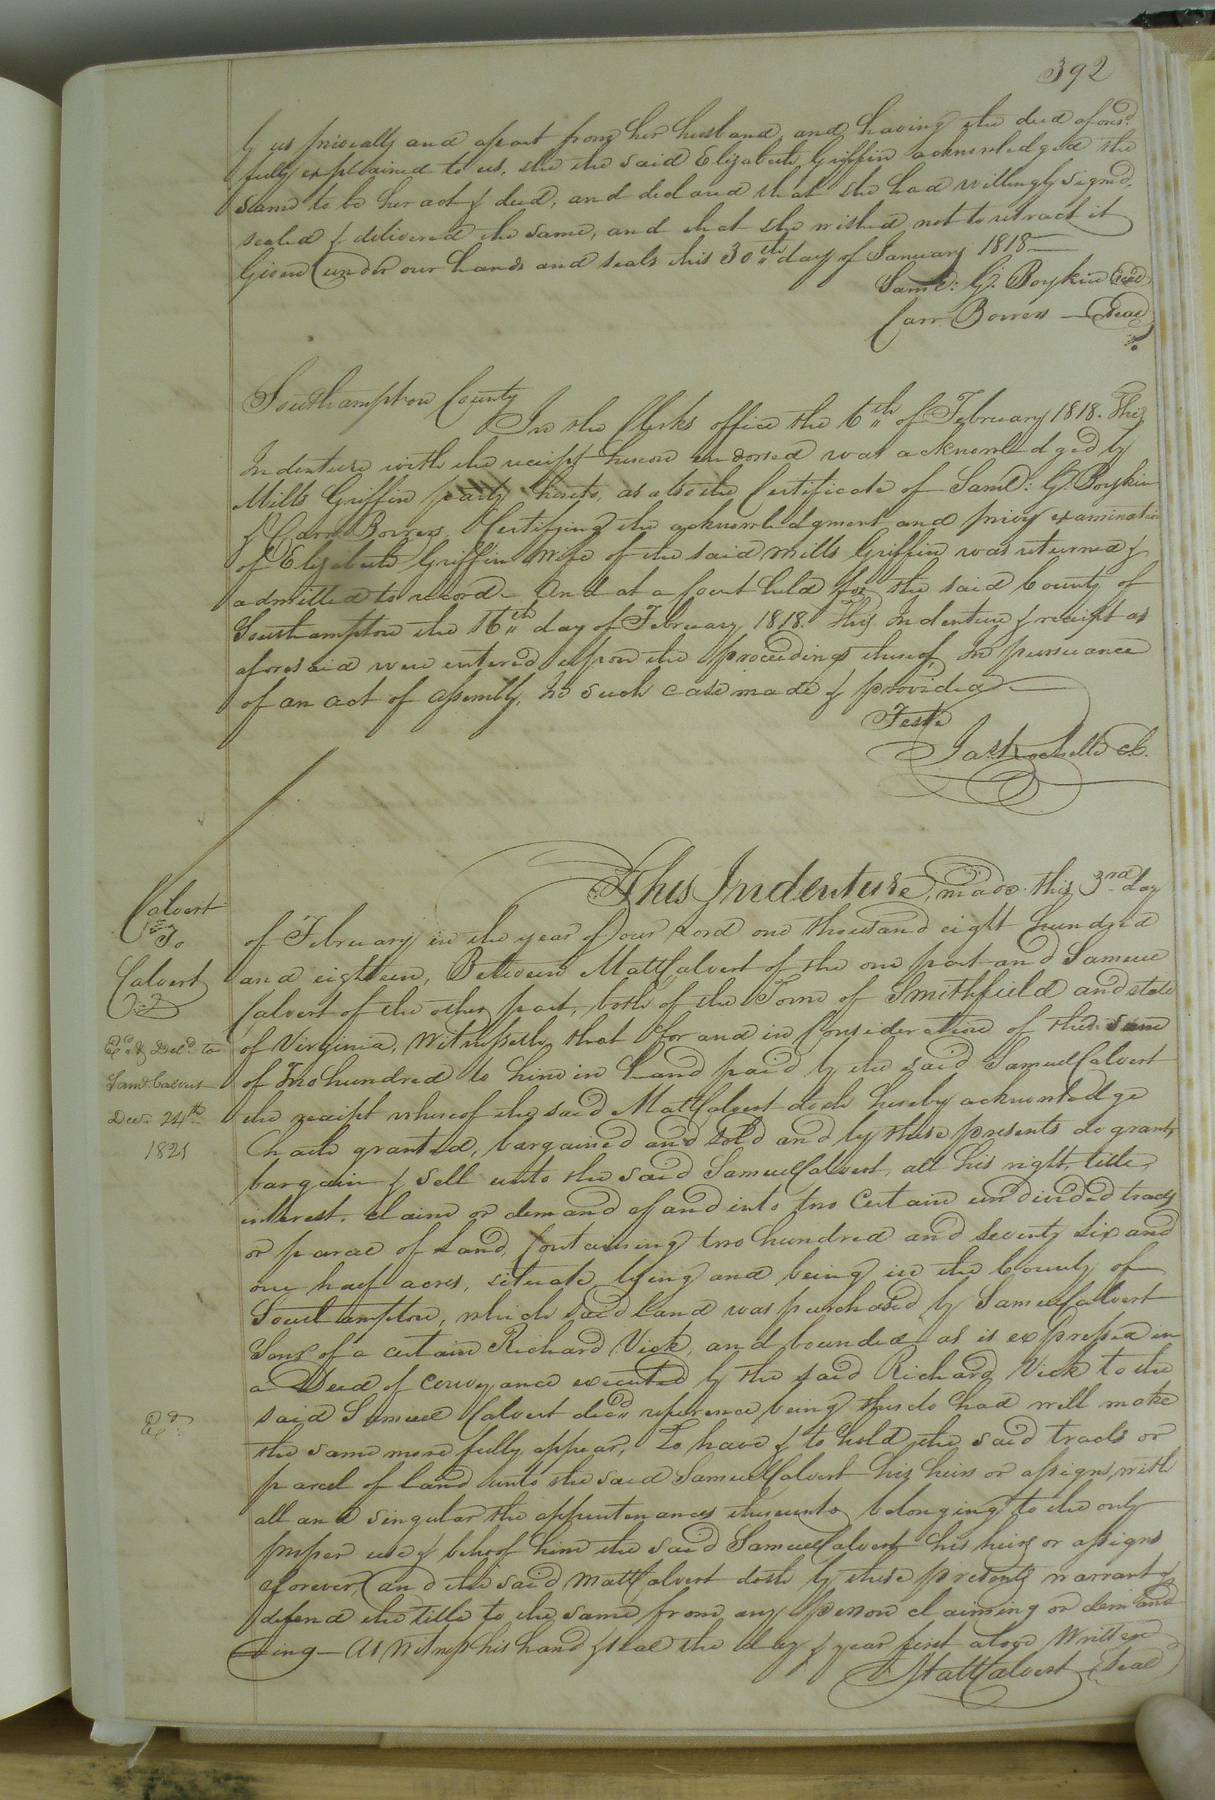 392
by us privately and apart from her husband, and having the deed afores.d
fully explained to us, she the said Elizabeth Griffin acknowledged the
same to be her act & deed, and declared that she had willingly signed,
sealed & delivered the same, and that she wished not to retract it
Given under our hands and seals this 30th day of January 1818
Saml: G. Boykin Seal
Carr Bowers — Seal
Southampton County
In the Clerks office the 6th of February 1818. This
Indenture with the receipt hereon endorsed was acknowledged by
Mills Griffin party hereto, as also the Certificate of Saml: G. Boykin
& Carr Bowers, Certifying the acknowledgment and privy examination
of Elizabeth Griffin wife of the said Mills Griffin was returned &
admitted to record — And at a Court held for the said County of
Southampton the 16th day of February 1818. This Indenture & receipt as
aforesaid were entered upon the proceedings thereof, In pursuance
of an act of assembly, in such case made & provided
Teste
Jas Rochelle cl.
Calvert
To
Calvert
Exd & Deld to
Saml Calvert
Decr 24th
1821
This Indenture, made this 3rd day
of February in the year of our Lord one thousand eight hundred
and eighteen, Between Matt Calvert of the one part and Samuel
Calvert of the other part, both of the Town of Smithfield and state
of Virginia, Witnesseth, that for and in Consideration of the sum
of Two hundred to him in hand paid by the said Samuel Calvert
the receipt whereof the said Matt Calvert doth hereby acknowledge
hath granted, bargained and sold and by these presents do grant,
bargain & sell unto the said Samuel Calvert, all his right, title,
interest, claim or demand of and into two Certain undivided tracts
or parcel of Land, Containing two hundred and seventy six and
one half acres, situate lying and being in the County of
Southampton, which said land was purchased by Samuel Calvert
Senr of a certain Richard Vick, and bounded as is expressed in
a Deed of Conveyance executed by the said Richard Vick to the
said Samuel Calvert decd reference being thereto had will make
the same more fully appear, To have & to hold the said tracts or
parcel of land unto the said Samuel Calvert his heirs or assigns, with
all and singular the appurtenances thereunto belonging to the only
proper use & behoof him the said Samuel Calvert his heirs or assigns
forever, and the said Matt Calvert doth by these presents warrant &
defend the title to the same from any person claiming or demand
ing — As Witness his hand & seal the day & year first above Written
Matt Calvert Seal